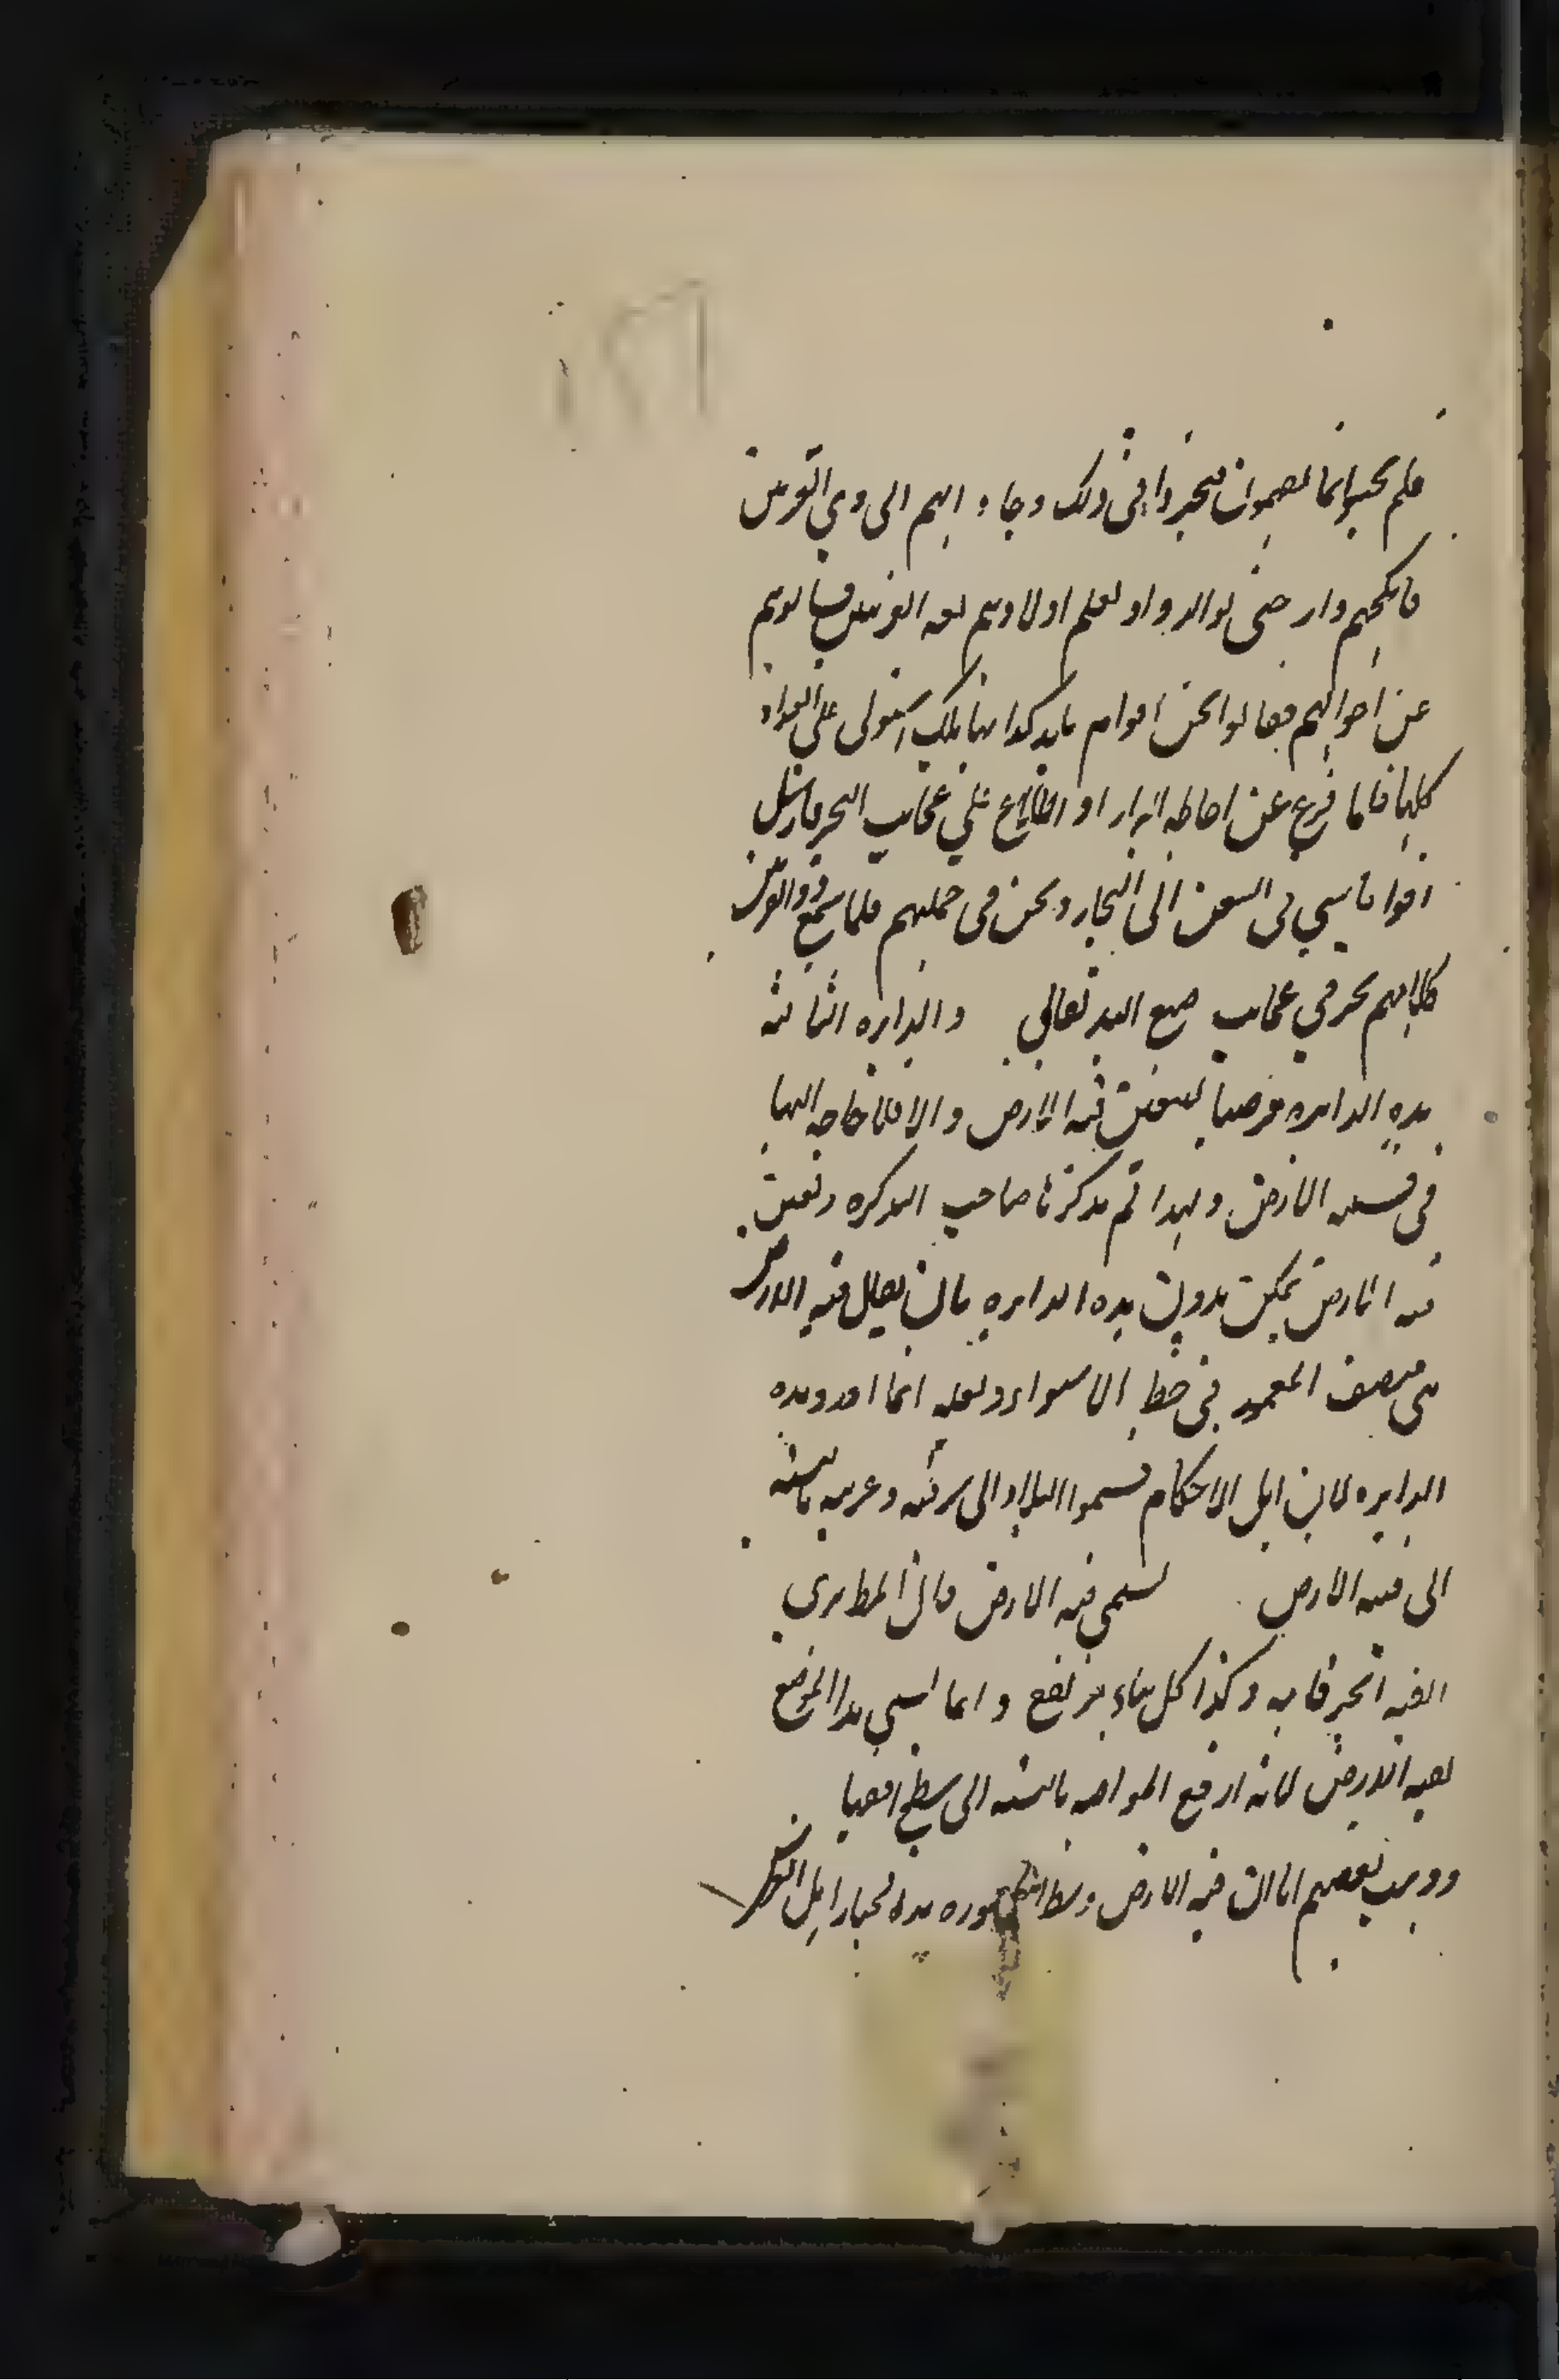 فلم يجيبوا بما يفهمون فتحيروا في ذلك وجاء بهم الى ذي القرنين
فانكحهم وارضى توالدوا وتعلم اولادهم لغة الفريقين فسالوهم
عن احوالهم فقالوا نحن اقوام ملك استولى على البلاد
كلها فلما فرغ عن احاطة البراراد الاطلاع على عجايب البحر فارسل
اقواما في السفن الى البحار ونحن في جملتهم فلما سمع ذو القرنين
كلامهم تحير في عجايب صنع الله تعالى والدايرة الثالثة
هذه الدايرة فرضها لتعيين قبة الارض والا فلا حاجة اليها
في قبة الارض ولهذا لم يذكرها صاحب التذكرة وتعيين
قبة الارض يمكن بدون هذه الدايرة بان يقال قبة الارض
هي منتصف المعمور في خط الاستواء ولعله انما اورد هذه
الدايرة لان اهل الاحكام قسموا البلاد الى شرقية وغربية بالنسبة
الى قبة الارض تسمى قبة الارض قال المطرزي
القبة الخرقاهة وكذا كل بناء مرتفع وانما سمي هذا الموضع
بقبة الارض لانه ارفع المواضع بالنسبة الى سطح افقها
وذهب بعضهم الى ان قبة الارض وسط المعمورة هذا اخبار اهل